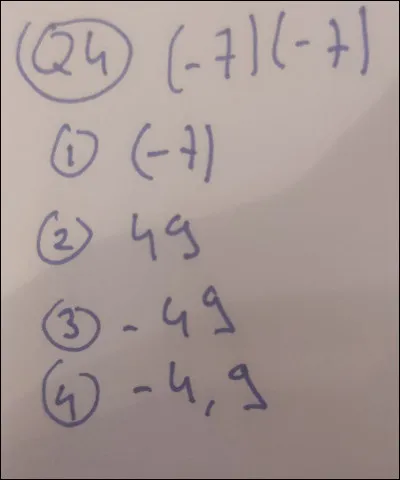 Q4 (-7)(-7)
1 (-7)
2 49
3 -49
4 -4,9